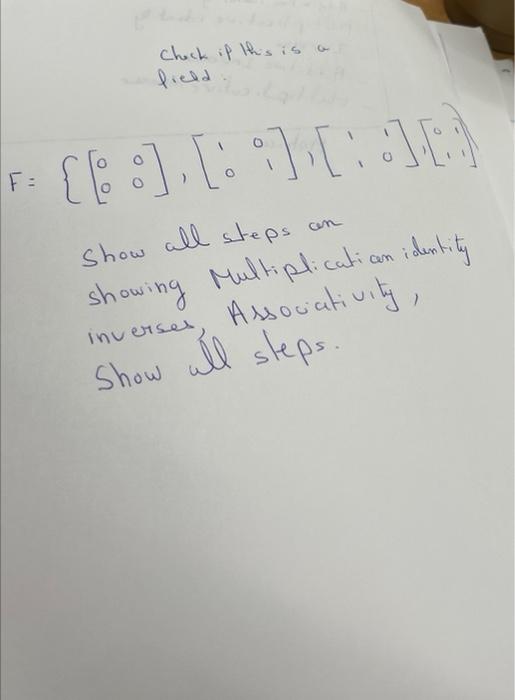 Check if this is a
field:
F = { [ 0 0 0 0 ] , [ 1 0 0 1 ] , [ 1 1 1 0 ] , [ 0 1 1 1 ] }
Show all steps on
showing Multiplication identity
inverses, Associativity,
Show all steps.